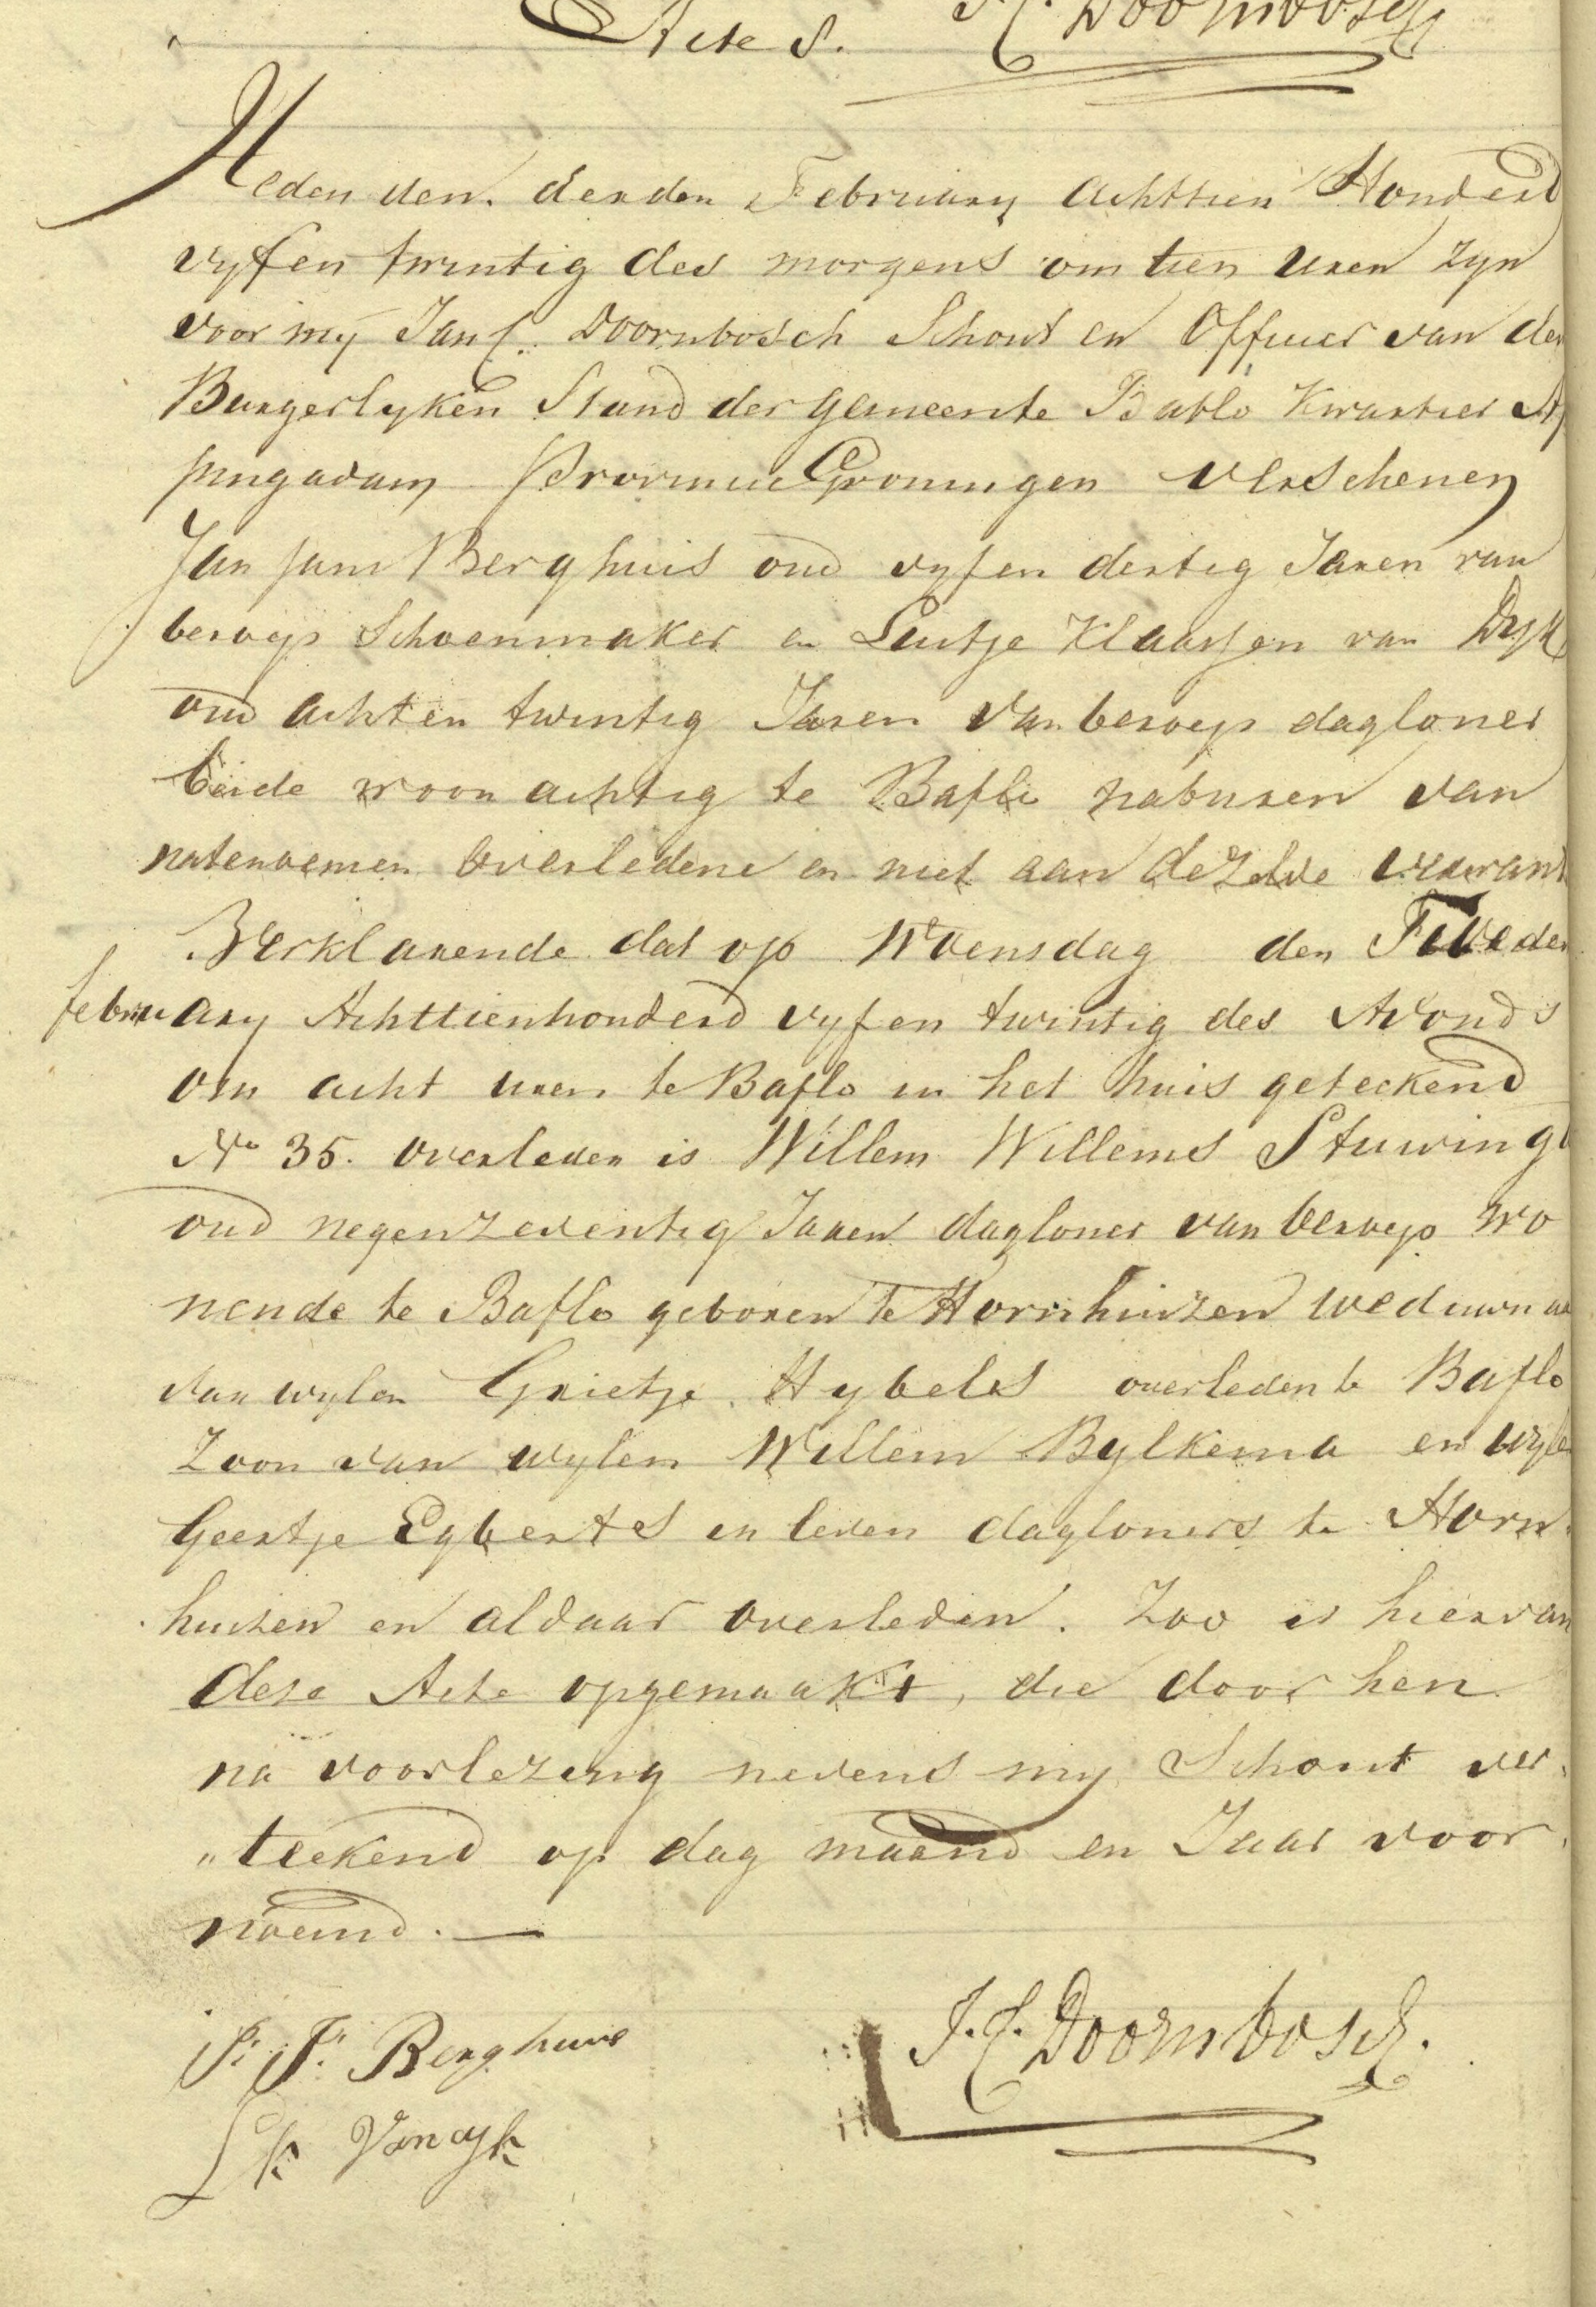 Acte 8. J C. Doornbosch
Heden den derden February Achttien Honderd
vyf en twintig des morgens om tien Uren zyn
voor mÿ Jan C. Doornbosch Schout en Officier van den
Burgerlyken Stand der Gemeente Baflo Kwartier Ap
pingadam Provincie Groningen verschenen
Jan Jans Berghuis oud vyf en dertig Jaren van
beroep Schoenmaker en Luitje Klaassen van Dyk
oud acht en twintig Jaren van beroep dagloner
beide woonachtig te Baflo naburen van
natenoemen overledene en niet aan dezelve verwant
Verklarende dat op Woensdag den Tweeden
february Achttienhonderd vyf en twintig des Avonds
om acht uren te Baflo in het huis geteekend
No 35. overleden is Willem Willems Stuwing
oud negenzeventig Jaren dagloner van beroep wo
nende te Baflo geboren te Hornhuizen weduwna
van wylen Grietje Hybels overleden te Baflo
Zoon van wylen Willem Bylkema en wyle
Geertje Egberts in leven dagloners te Horn
huizen en aldaar overleden. Zoo is hiervan
deze Acte opgemaakt, die door hen
na voorlezing nevens my Schout ver
„teekend op dag maand en Jaar voor
noemd. —
J. J. Berghuis J. C. Doornbosch.
L K Van dyk